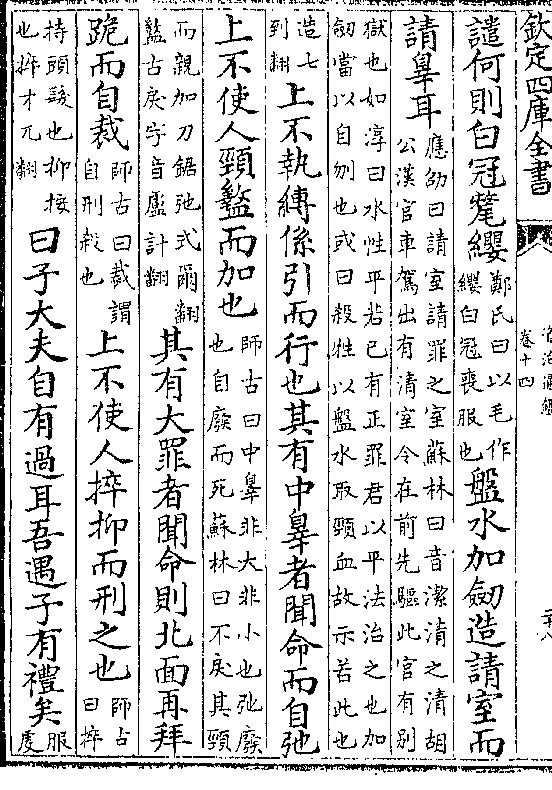 欽定四庫全書
卷十四
譴何則白冠氂纓鄭氏曰以毛作纓白冠喪服也盤水加劒造請室而
請辠耳應劭曰請室請罪之室蘇林曰音潔清之清胡公漢官車駕出有清室令在前先驅此官有别
獄也如淳曰水性平若已有正罪君以平法治之也加劒當以自刎也或曰殺牲以盤水取頸血故示若此也
造七到翻上不執縛係引而行也其有中辠者聞命而自弛
上不使人頸盭而加也師古曰中辠非大非小也弛廢也自廢而死蘇林曰不戾其頸
而親加刀鋸弛式爾翻盭古戾字音盧計翻其有大罪者聞命則北面再拜
跪而自裁師古曰裁謂自刑殺也上不使人捽抑而刑之也師古曰捽
持頭髮也抑按也捽才兀翻曰子大夫自有過耳吾遇子有禮矣服䖍